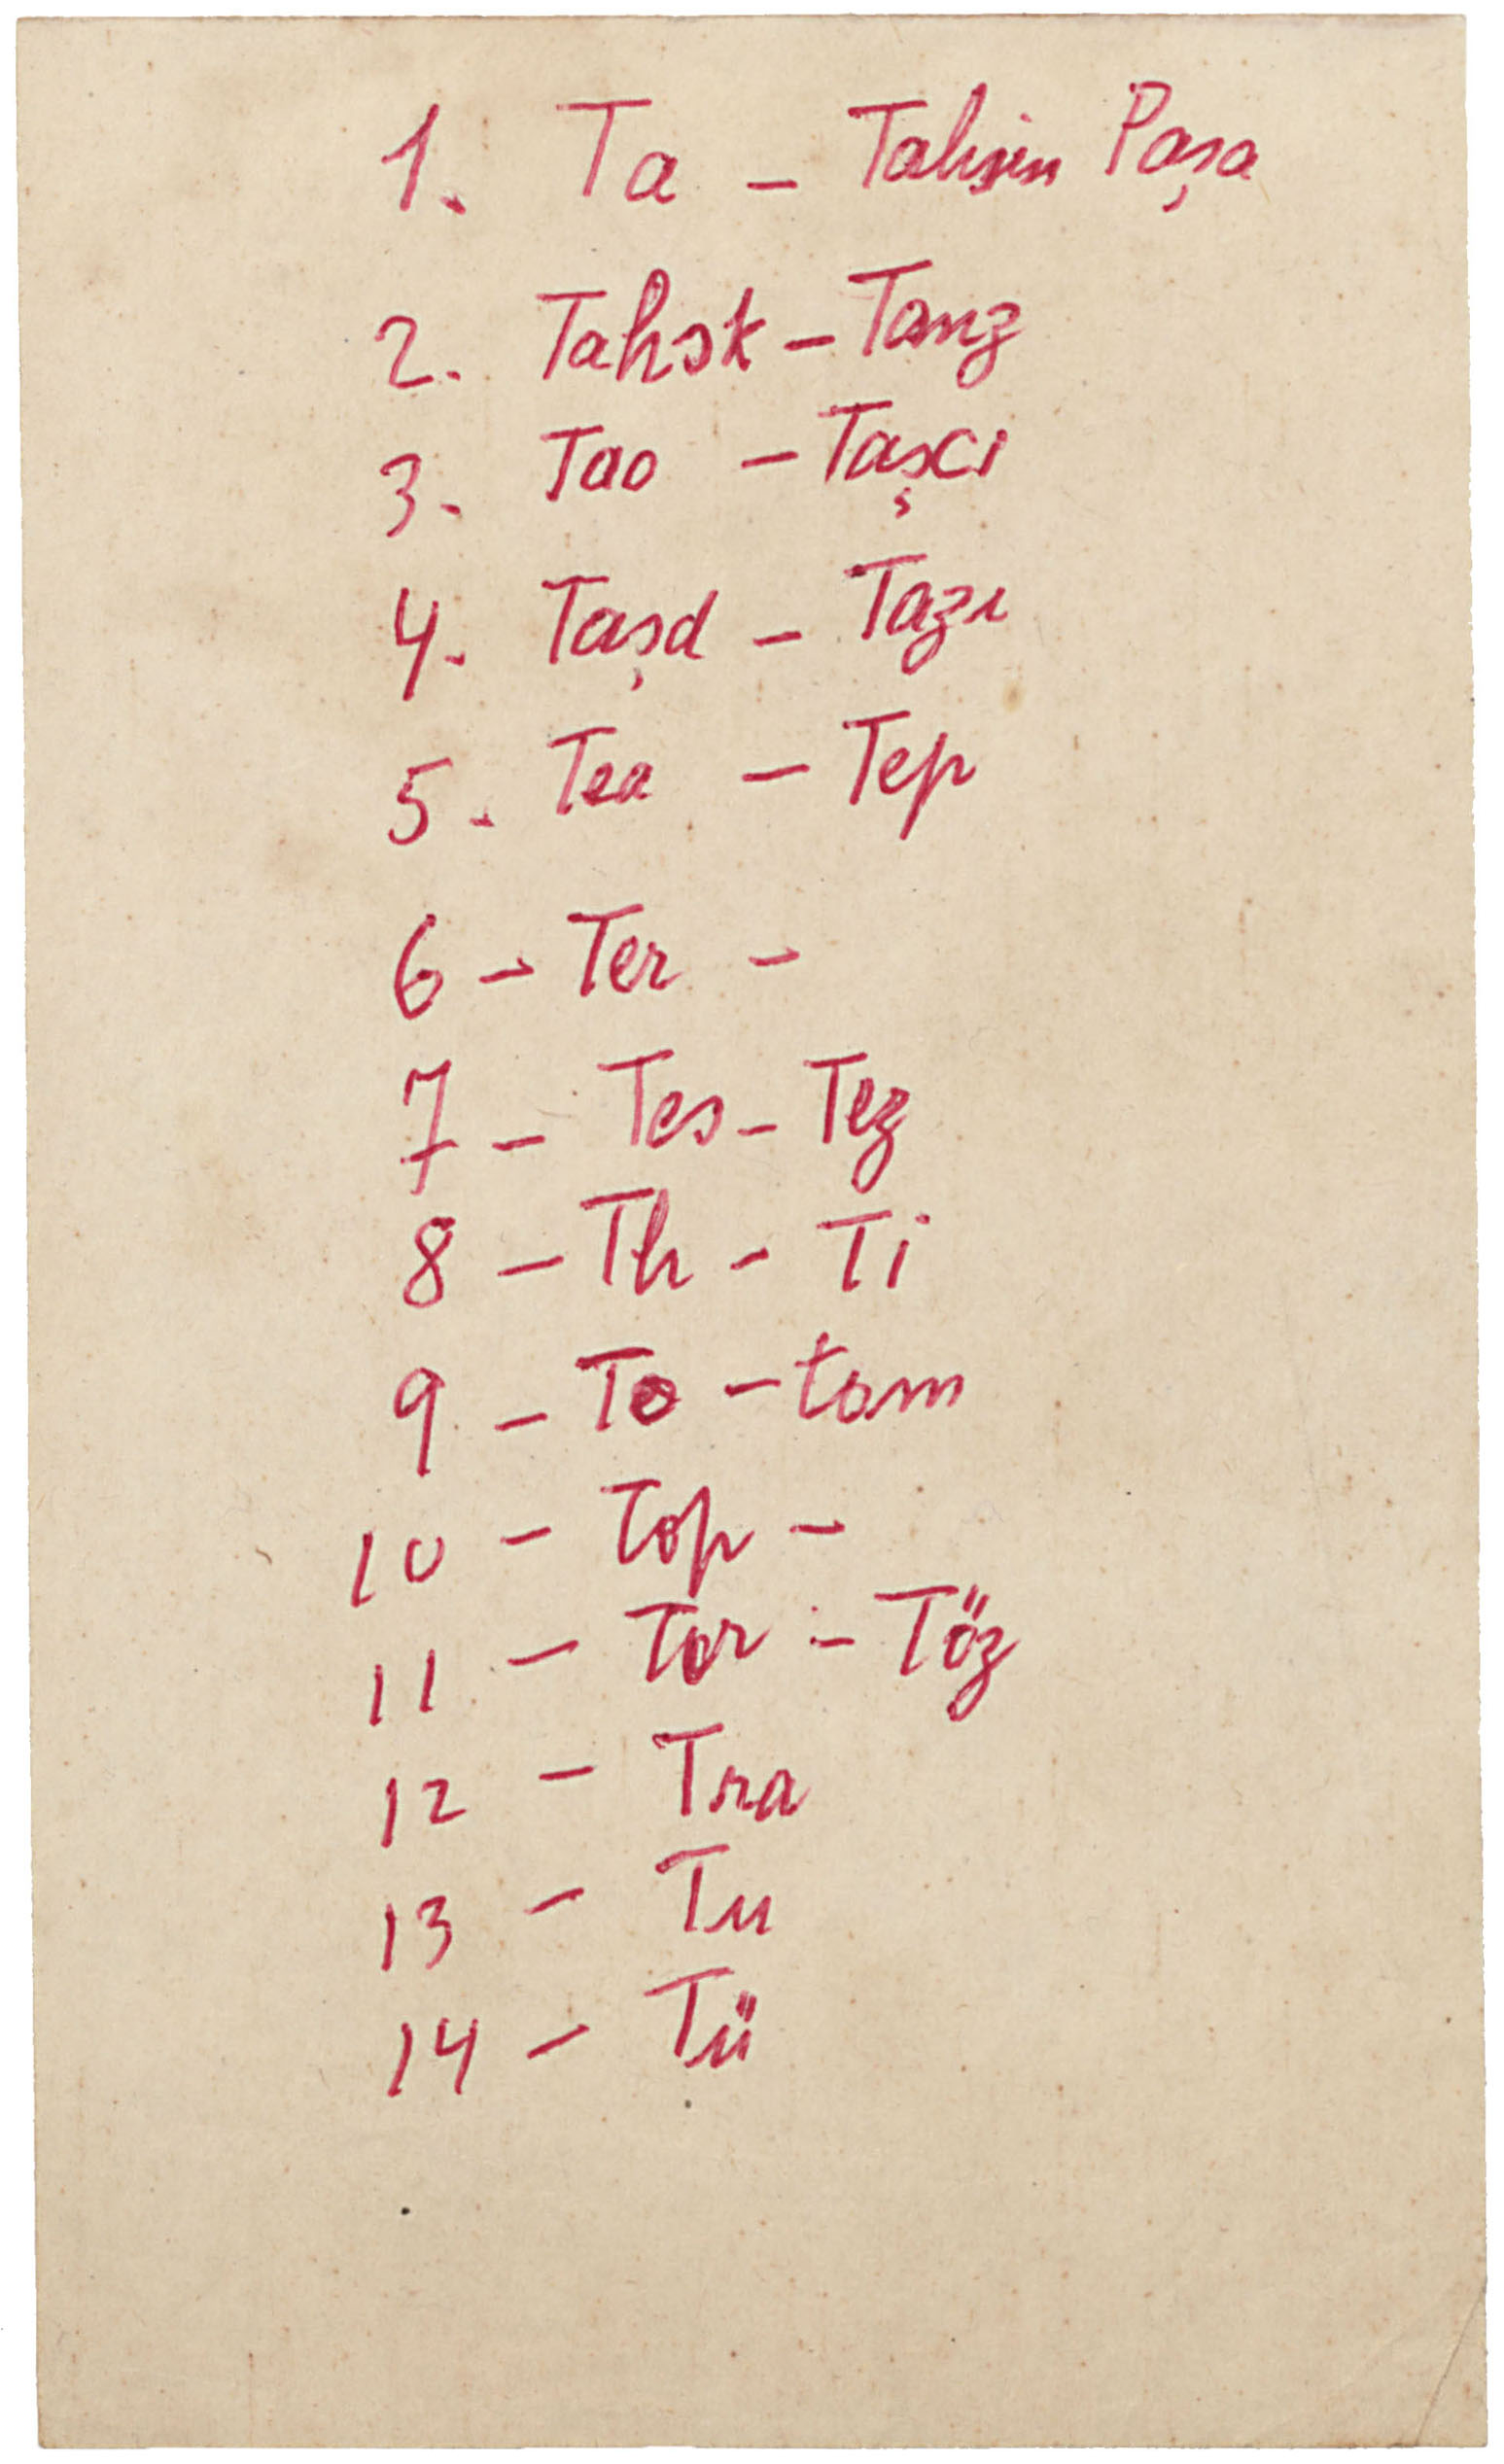 1. Ta - Tahsin Paşa
2. Tahsk - Tanz
3. Tao - Taşci
4. Taşd - Tazı
5. Tea - Tep
6 - Ter -
7 - Tes - Tez
8 - Th - Ti
9 - To - tom
10 - Top -
11 - Tor - Töz
12 - Tra
13 - Tu
14 - Tü